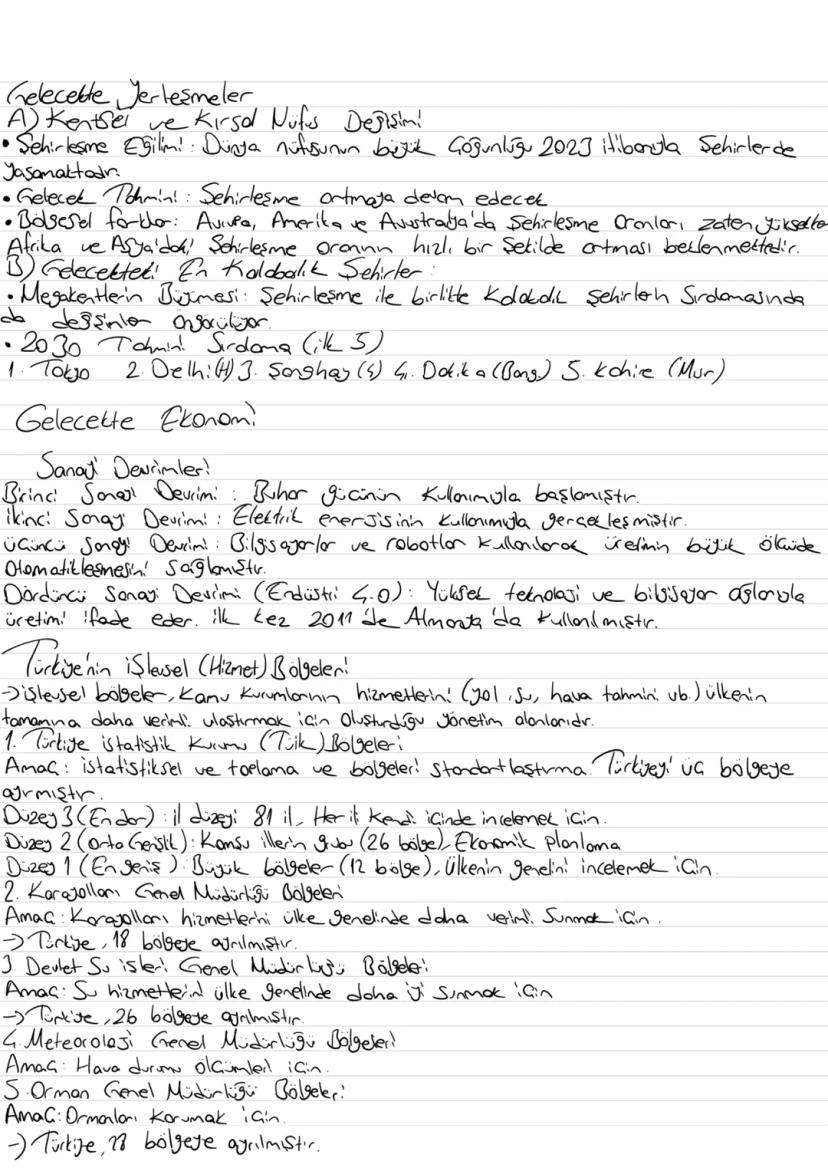 Gelecekte Yerleşmeler
A) Kentsel ve Kırsal Nüfus Değişimi
• Şehirleşme Eğilimi : Dünya nüfusunun büyük Çoğunluğu 2023 itibarıyla Şehirlerde
Yaşamaktadır.
• Gelecek Tahmini : Şehirleşme artmaya devam edecek
• Bölgesel farklar : Avrupa, Amerika ve Avustralya'da Şehirleşme Oranları zaten yüksekte
Afrika ve Asya'daki Şehirleşme oranının hızlı bir Şekilde artması beklenmektedir.
B) Gelecekteki En Kalabalık Şehirler :
• Megakentlerin Büyümesi : Şehirleşme ile birlikte Kalabalık Şehirlerin Sıralamasında
da değişimler öngörülüyor.
• 2030 Tahmini Sıralama (ilk 5)
1. Tokyo 2. Delhi (H) 3. Şanghay (Ç) 4. Dakka (Bang) 5. Kahire (Mısır)
Gelecekte Ekonomi
Sanayi Devrimleri
Birinci Sanayi Devrimi : Buhar gücünün Kullanımıyla başlamıştır.
İkinci Sanayi Devrimi : Elektrik enerjisinin kullanımıyla gerçekleşmiştir.
Üçüncü Sanayi Devrimi : Bilgisayarlar ve robotlar kullanılarak üretimin büyük ölçüde
Otomatikleşmesini Sağlamıştır.
Dördüncü Sanayi Devrimi (Endüstri 4.0) : Yüksek teknoloji ve bilgisayar ağlarıyla
üretimi ifade eder. ilk kez 2011'de Almanya'da kullanılmıştır.
Türkiye'nin İşlevsel (Hizmet) Bölgeleri
→ işlevsel bölgeler, Kamu Kurumlarının hizmetlerini (yol, su, hava tahmini vb.) ülkenin
tamamına daha verimli ulaştırmak için Oluşturduğu yönetim alanlarıdır.
1. Türkiye istatistik Kurumu (Tüik) Bölgeleri
Amaç : istatistiksel ve toplama ve bölgeleri Standartlaştırma. Türkiyeyi üç bölgeye
ayrmıştır.
Düzey 3 (En dar) : il düzeyi 81 il, Her ili Kendi içinde incelemek için.
Düzey 2 (orta Genişlik) : Komşu illerin grubu (26 bölge), Ekonomik planlama
Düzey 1 (En geniş) : Büyük bölgeler (12 bölge), Ülkenin genelini incelemek için.
2. Karayolları Genel Müdürlüğü Bölgeleri
Amaç : Karayolları hizmetlerini ülke genelinde daha verimli Sunmak için.
→ Türkiye, 18 bölgeye ayrılmıştır.
3. Devlet Su işleri Genel Müdürlüğü Bölgeleri
Amaç : Su hizmetlerini ülke genelinde daha iyi Sunmak için
→ Türkiye, 26 bölgeye ayrılmıştır.
4. Meteoroloji Genel Müdürlüğü Bölgeleri
Amaç : Hava durumu ölçümleri için.
5. Orman Genel Müdürlüğü Bölgeleri
Amaç : Ormanları Korumak için.
→ Türkiye, 28 bölgeye ayrılmıştır.